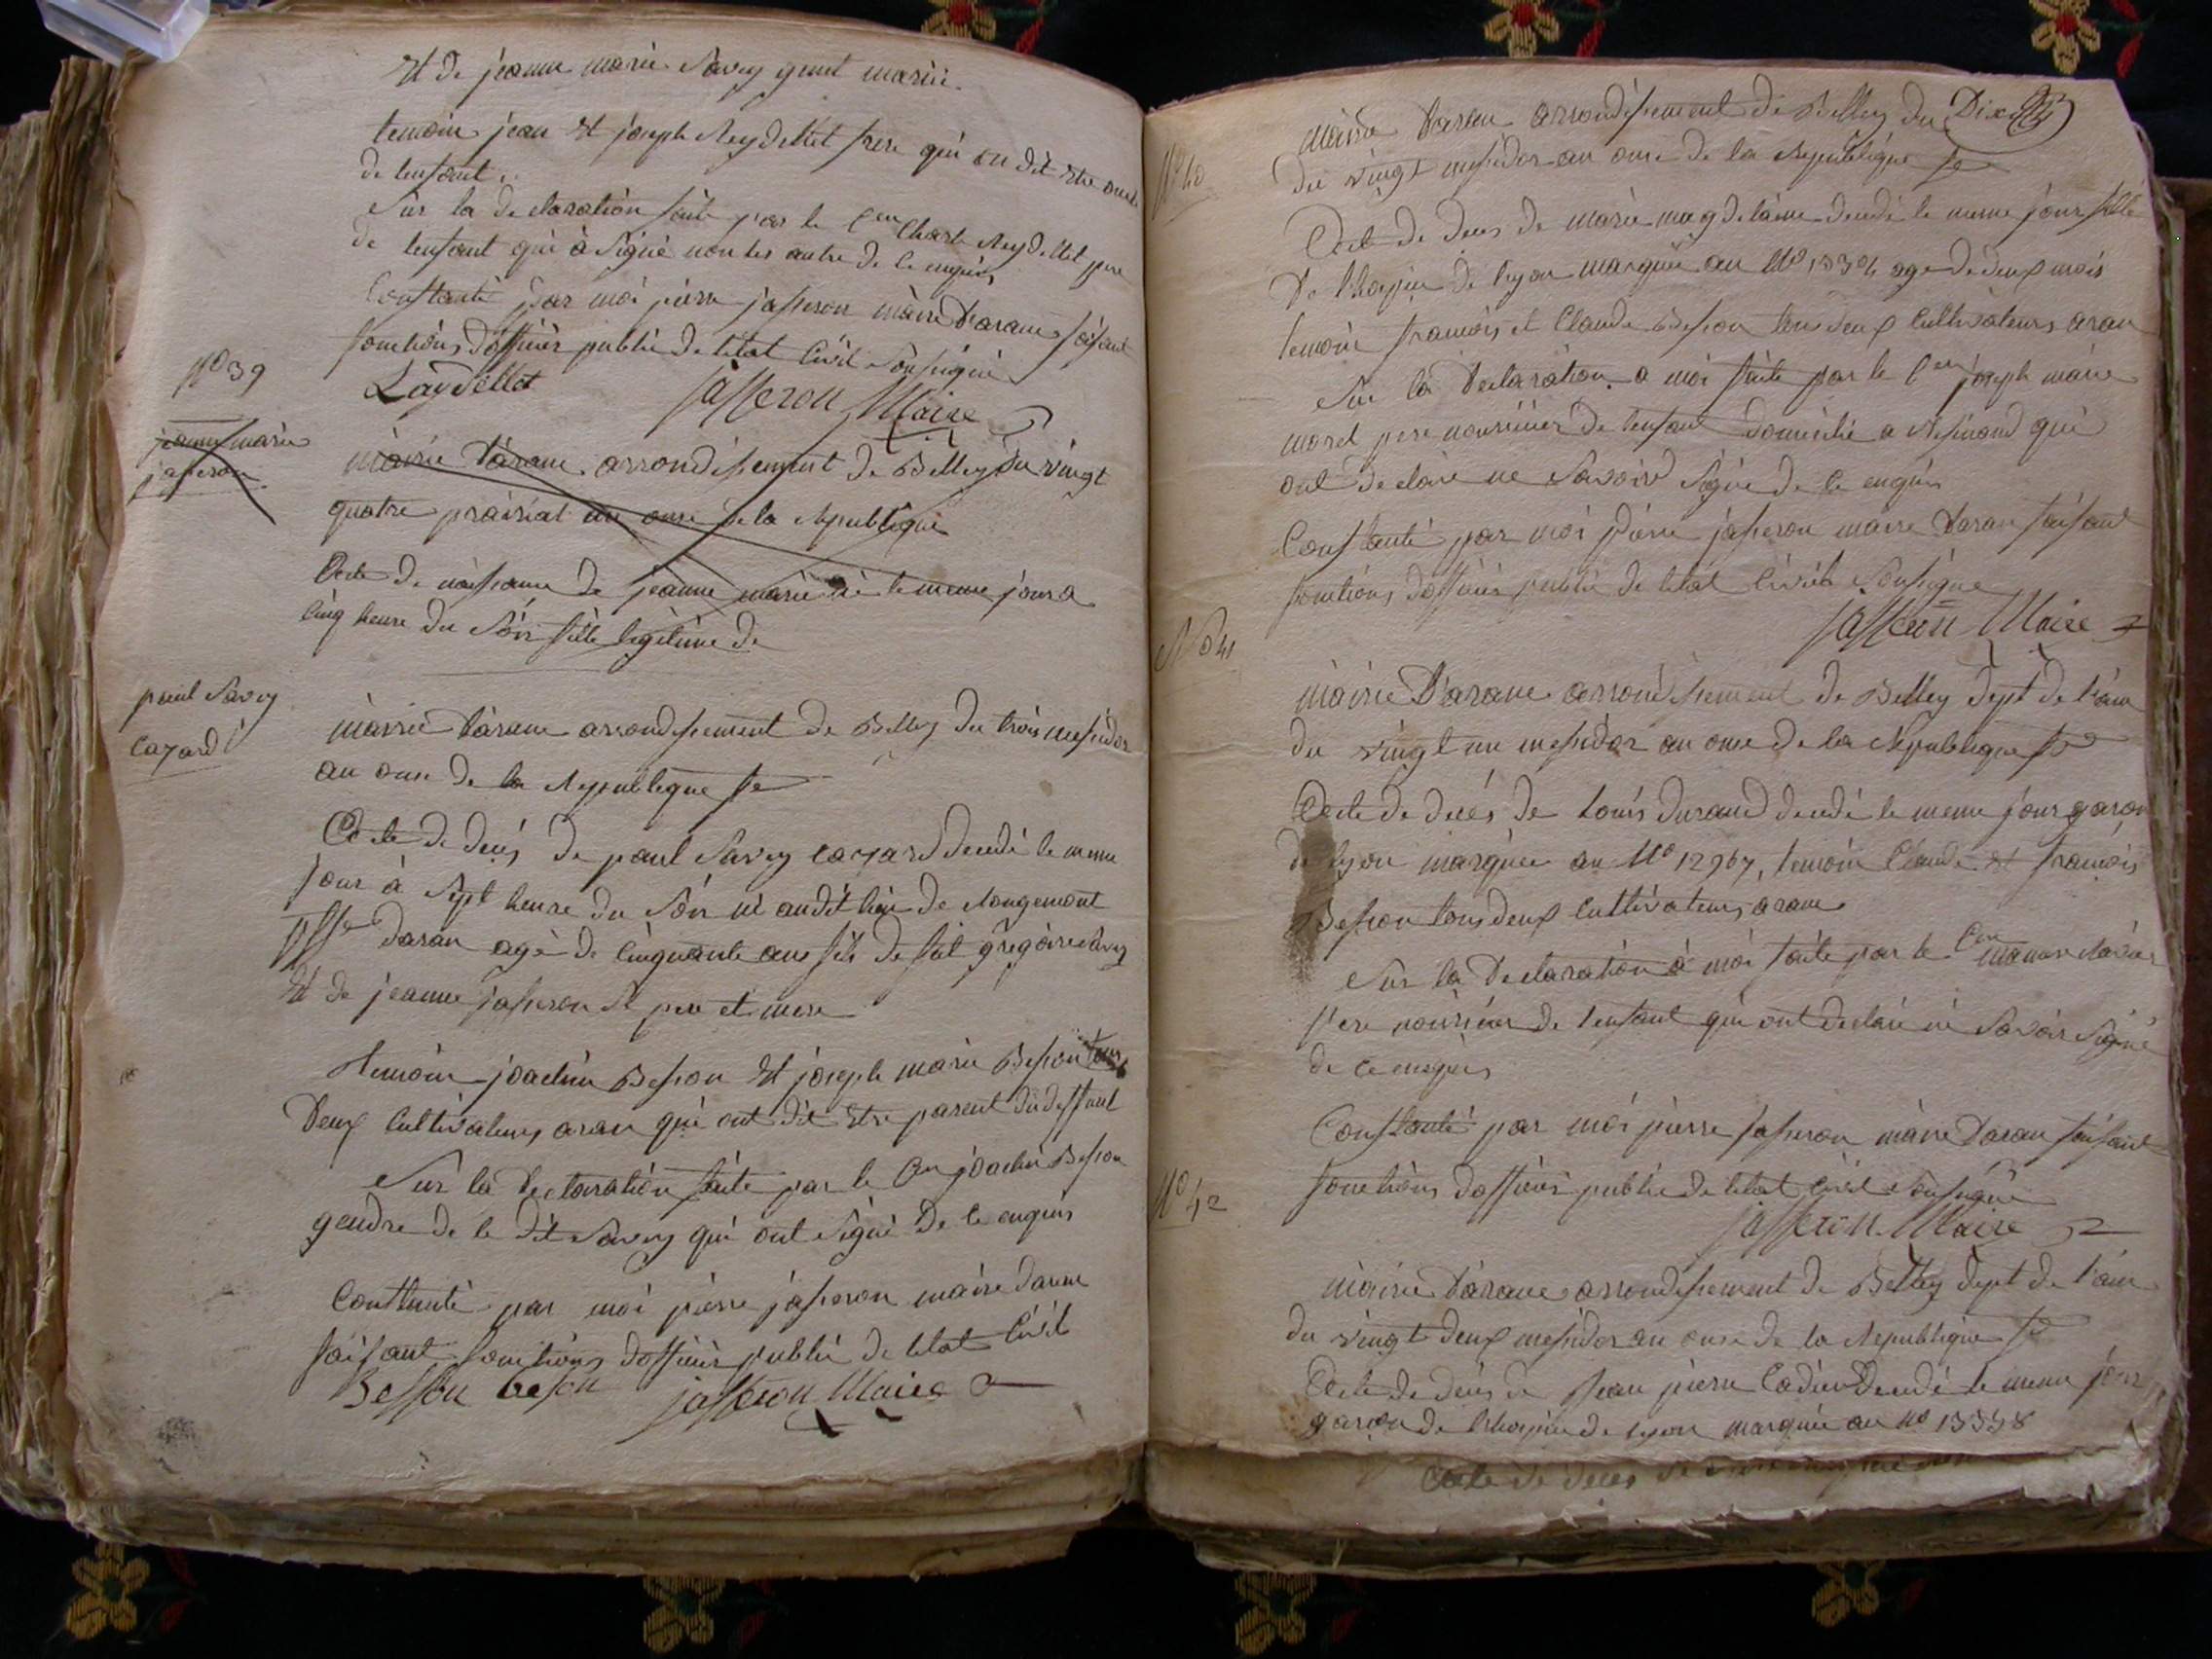 Et de jeanne marie Savey genet mariée
temoin jean Et joseph Reydellet frere qui on dit Etre oncle
de lenfant
Sur la declaration faite par le Cen Charle Reydellet pere
de lenfant qui à Signé non les autre de ce enquis
Constanté par moi pierre jasseron màire D'arane faisant
fonctions dofficier public de letat Civil Soussigné
Laydellet jasseron Maire
No 39
jeanne marie
jasseron
màirie D'arane arrondissement de Belley du vingt
quatre prairial an onze de la Republique
Acte de naissance de jeanne marie né le meme jour a
cinq heure du Soir fille legitime de
paul Savey
cazard
màirie D'arane arrondissement de Belley du trois messidor
an onze de la Republique
Acte de decés de paul Savey cazard decedé le meme
jour à Sept heure du Soir né audit lieu de Rougemont
psse daran agé de cinquante ans fils de fut gregoire Savey
Et de jeanne jasseron Se pere et mere
temoin joachin Besson Et joseph marie Besson tous
Deux Cultivateurs aran qui ont dit Etre parent du deffunt
Sur la Declaration faite par le Cen joachin Besson
gendre de le dit Savey qui ont Signé De ce enquis
Constanté par moi pierre jasseron maire darane
faisant fonctions dofficier public de letat Civil
Besson beson jasseron Maire
No 40
màirie Daran arrondissement de Belley du Dix
du vingt messidor an onze de la Republique
Acte de deces de marie magdelaine decedé le meme jour fille
De lhospice de lyon marquée au No 1330 age de deux mois
temoin francois et Claude Besson tous deux Cultivateurs aran
Sur la Declaration a moi faite par le Cen joseph marie
morel pere nourricier de lenfant domicilié a Resinond qui
ont declaré ne Savoir Signé de ce enquis
Constanté par moi Pierre jasseron maire Daran faisant
fonctions dofficier public de letat Civile Soussigné
jasseron Maire
No 41
màirie D'arane arrondissement de Belley dept de l'ain
du vingt un messidor an onze de la Republique
Acte de decés de Louis Durand decedé le meme jour garçon
de lyon marquée au No 12967, temoin Claude Et francois
Besson tous deux Cultivateurs arane
Sur la Declaration à moi faite par le Cen
Pere nourricier de lenfant qui ont declaré né Savoir Signé
de ce enquis
Constanté par moi pierre jasseron màire Daran faisant
fonctions dofficier public de letat Civil Soussigné
jasseron Maire
No 42
màirie D'arane arrondissement de Belley dept de l'ain
du vingt deux messidor an onze de la Republique
Acte de decés de jean pierre Decedé le meme jour
garçon de lhospice de lyon marquée au No 13338
Acte de deces de